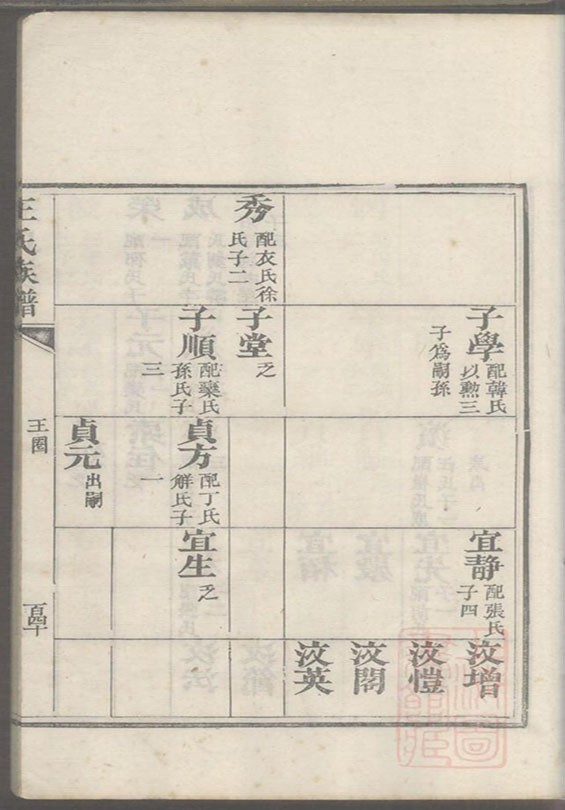 秀
配衣氏徐
氏子二
子學
配韓氏
以勲三
子爲嗣孫
子堂
乏
子順
配欒氏
孫氏子
三
貞方
配丁氏
解氏子
一
貞元
出嗣
宜靜
配張氏
子四
宜生
乏
汶增
汶愷
汶閣
汶英
王氏族譜
王圈
百四十